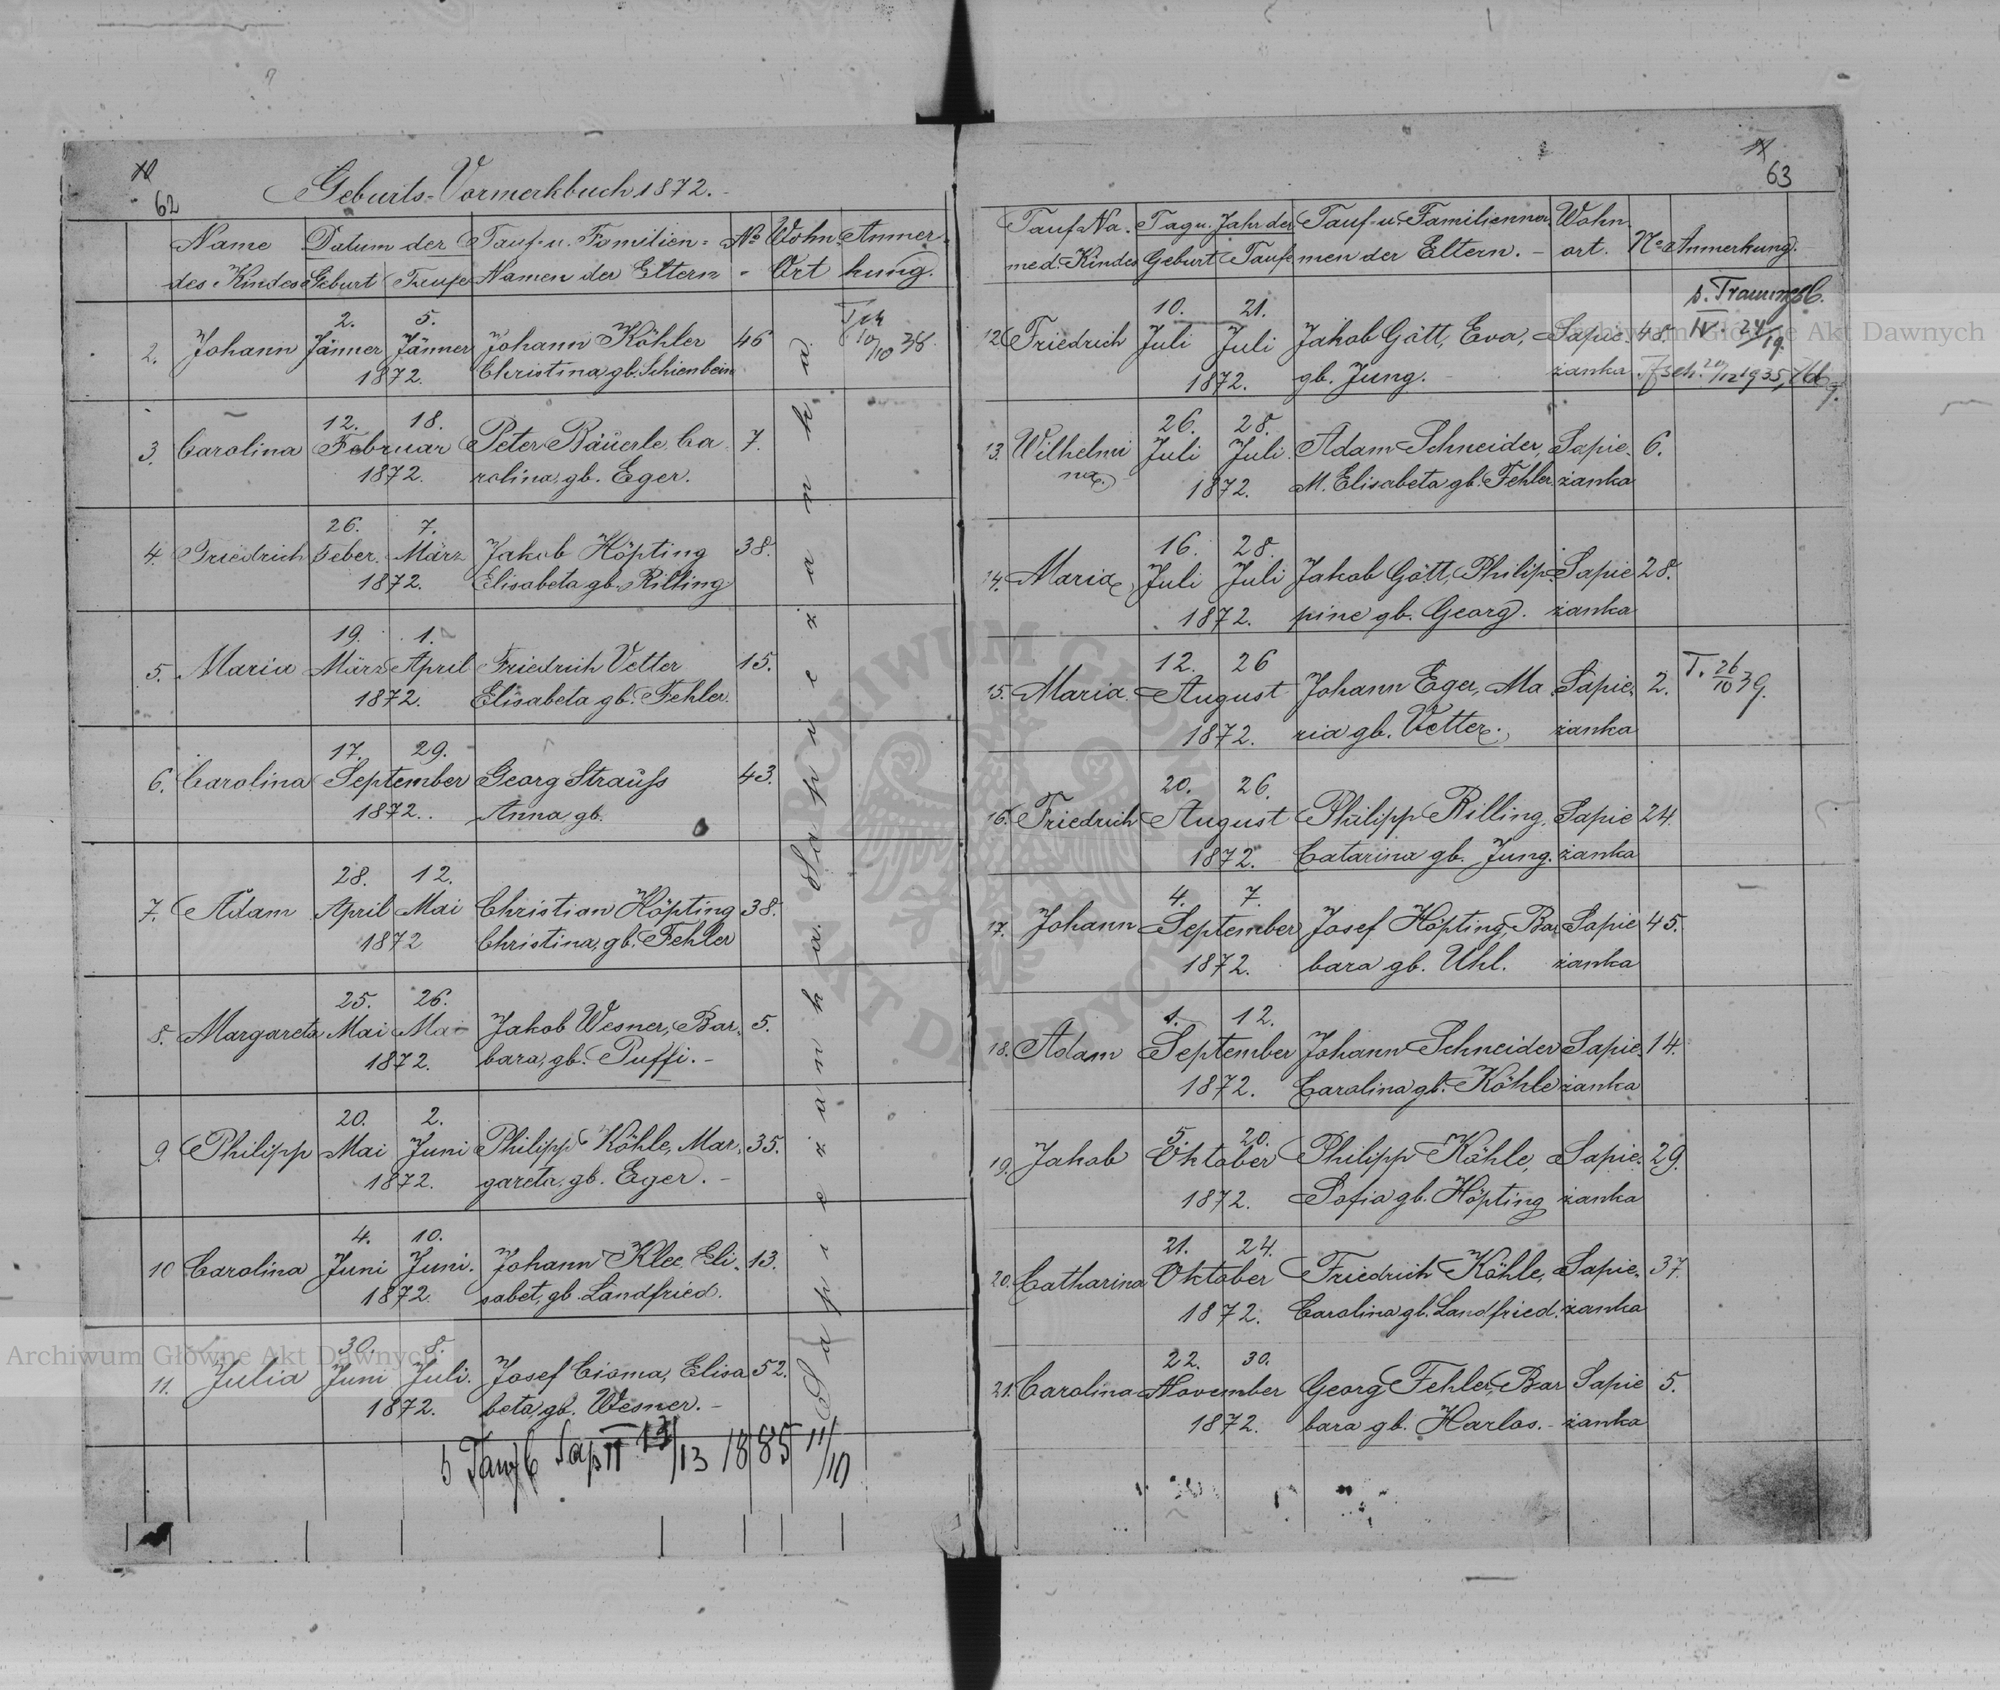 62
Geburts-Vormerkbuch 1872.
Name des Kindes Datum der Geburt Taufe Tauf- u. Familien- Namen der Eltern No Wohn- Ort Anmer- kung.
2. 5.
2. Johann Jänner Jänner Johann Köhler 46
1872. Christina, gb. Schienbein
10/10 38
12. 18.
3. Carolina Februar Peter Bäuerle, Ca 7.
1872. rolina, gb. Eger.
26. 7.
4. Friedrich Feber. März Jakob Höpting 38.
1872. Elisabeta gb. Rilling
19. 1.
5. Maria März April Friedrich Vetter 15.
1872. Elisabeta gb. Fehler.
17. 29.
6. Carolina September Georg Strauß 43.
1872.. Anna gb.
28. 12.
7. Adam April Mai Christian Höpting 38.
1872 Christina, gb. Fehler
25. 26.
8. Margareta Mai Mai Jakob Wesner, Bar- 5.
1872. bara, gb. Puffi. -
20. 2.
9. Philipp Mai Juni Philipp Köhle, Mar- 35.
1872. gareta, gb. Eger. -
4. 10.
10 Carolina Juni Juni. Johann Klee, Eli- 13.
1872. sabet, gb. Landfried.
30. 8.
11. Julia Juni Juli. Josef Cioma, Elisa 52.
1872. beta, gb. Wesner. -
Sapiezanka. Sapiezanka
1885 11/10
63
Tauf-Na- me d. Kindes Tag u. Jahr der Geburt Taufe Tauf- u. Familienna- men der Eltern. - Wohn- ort. No Anmerkung.
10. 21.
12. Friedrich Juli Juli Jakob Gött, Eva, Sapie- 48.
1872. gb. Jung. żanka
26. 28.
13. Wilhelmi Juli Juli. Adam Schneider, Sapie- 6.
na 1872. M. Elisabeta gb. Fehler. żanka
16. 28.
14. Maria, Juli Juli Jakob Gött, Philip- Sapie 28.
1872. pine gb. Georg. żanka
12. 26
15. Maria. August Johann Eger, Ma Sapie- 2. T. 26/10 39.
1872. ria gb. Vetter. żanka
20. 26.
16. Friedrich August Philipp Rilling, Sapie 24.
1872. Catarina gb. Jung. żanka
4. 7.
17. Johann September Josef Höpting, Bar Sapie 45.
1872. bara gb. Uhl. żanka
1. 12.
18. Adam September Johann Schneider Sapie- 14.
1872. Carolina gb. Köhle żanka
5. 20.
19. Jakob Oktober Philipp Köhle, Sapie- 29.
1872. Sofia gb. Höpting żanka
21. 24.
20. Catharina Oktober Friedrich Köhle, Sapie- 37.
1872. Carolina gb. Landfried. żanka
22. 30.
21. Carolina November Georg Fehler, Bar Sapie 5.
1872. bara gb. Harlos. - żanka
Archiwum Główne Akt Dawnych
Archiwum Główne Akt Dawnych
ARCHIWUM GŁÓWNE AKT DAWNYCH